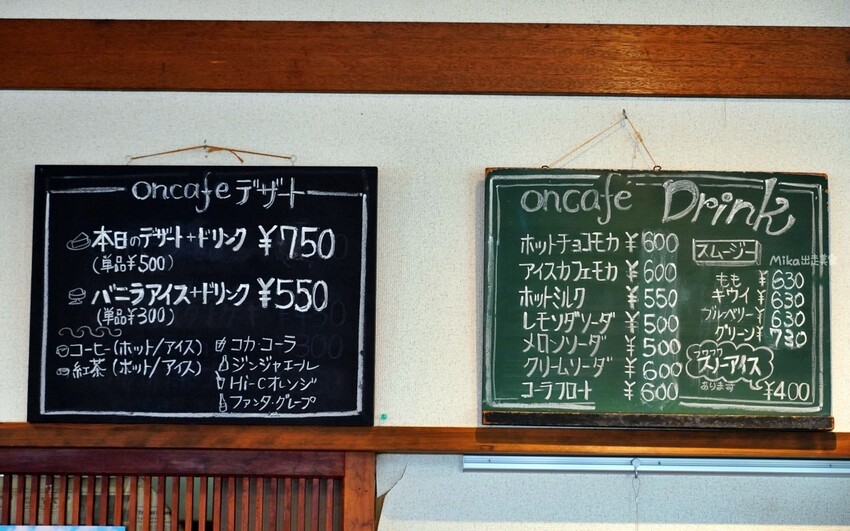 oncafe デザート
本日のデザート+ドリンク ¥750
(単品¥500)
バニラアイス+ドリンク ¥550
(単品¥300)
コーヒー(ホット/アイス)
紅茶(ホット/アイス)
コカ・コーラ
ジンジャエール
Hi-Cオレンジ
ファンタ・グレープ
oncafe Drink
ホットチョコモカ ¥600
アイスカフェモカ ¥600
ホットミルク ¥550
レモンダソーダ ¥500
メロンソーダ ¥500
クリームソーダ ¥600
コーラフロート ¥600
スムージー
Mika出走美食
もも ¥630
キウイ ¥630
ブルーベリー ¥630
グリーン ¥730
フワフワ
スノーアイス
あります ¥400